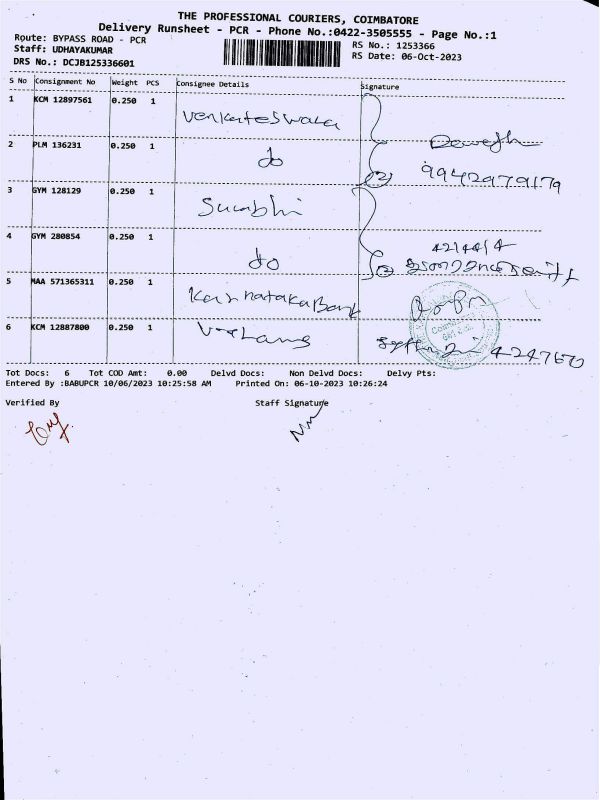 THE PROFESSIONAL COURIERS, COIMBATORE
Delivery Runsheet - PCR - Phone No.:0422-3505555 - Page No.:1
Route: BYPASS ROAD - PCR
Staff: UDHAYAKUMAR
DRS No.: DCJB125336601
RS No.: 1253366
RS Date: 06-Oct-2023
S No Consignment No Weight PCS Consignee Details Signature
1 KCM 12897561 0.250 1 Venkateswara
2 PLM 136231 0.250 1 do
9942979179
3 GYM 128129 0.250 1 Surabhi
4 GYM 280854 0.250 1 do
5 MAA 571365311 0.250 1 Karnataka Bank
6 KCM 12887800 0.250 1
4247670
Tot Docs: 6 Tot COD Amt: 0.00 Delvd Docs: Non Delvd Docs: Delvy Pts:
Entered By :BABUPCR 10/06/2023 10:25:58 AM Printed On: 06-10-2023 10:26:24
Verified By Staff Signature